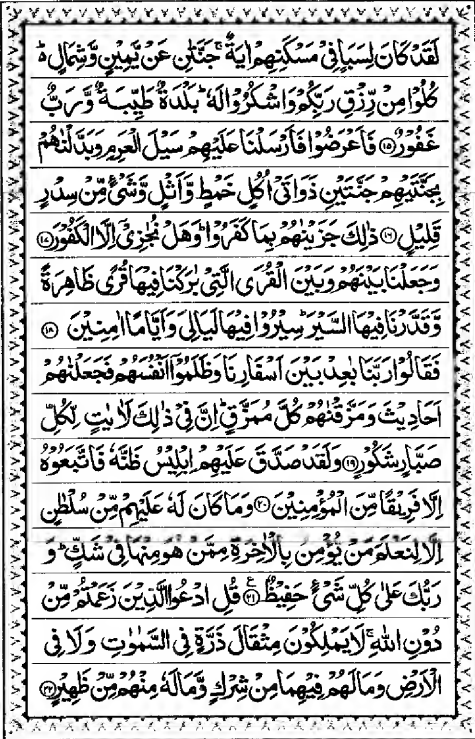 لَقَدْ كَانَ لِسَبَاٍ فِىْ مَسْكَنِهِمْ اٰيَةٌ ۚ جَنَّتٰنِ عَنْ يَّمِيْنٍ وَّشِمَالٍ ۬ؕ
كُلُوْا مِنْ رِّزْقِ رَبِّكُمْ وَاشْكُرُوْا لَهٗ ؕ بَلْدَةٌ طَيِّبَةٌ وَّرَبٌّ
غَفُوْرٌ ﴿۱۵﴾ فَاَعْرَضُوْا فَاَرْسَلْنَا عَلَيْهِمْ سَيْلَ الْعَرِمِ وَبَدَّلْنٰهُمْ
بِجَنَّتَيْهِمْ جَنَّتَيْنِ ذَوَاتَىْ اُكُلٍ خَمْطٍ وَّاَثْلٍ وَّشَىْءٍ مِّنْ سِدْرٍ
قَلِيْلٍ ﴿۱۶﴾ ذٰلِكَ جَزَيْنٰهُمْ بِمَا كَفَرُوْا ؕ وَهَلْ نُجٰزِىْۤ اِلَّا الْكَفُوْرَ ﴿۱۷﴾
وَجَعَلْنَا بَيْنَهُمْ وَبَيْنَ الْقُرَى الَّتِىْ بٰرَكْنَا فِيْهَا قُرًى ظَاهِرَةً
وَّقَدَّرْنَا فِيْهَا السَّيْرَ ؕ سِيْرُوْا فِيْهَا لَيَالِىَ وَاَيَّامًا اٰمِنِيْنَ ﴿۱۸﴾
فَقَالُوْا رَبَّنَا بٰعِدْ بَيْنَ اَسْفَارِنَا وَظَلَمُوْۤا اَنْفُسَهُمْ فَجَعَلْنٰهُمْ
اَحَادِيْثَ وَمَزَّقْنٰهُمْ كُلَّ مُمَزَّقٍ ؕ اِنَّ فِىْ ذٰلِكَ لَاٰيٰتٍ لِّكُلِّ
صَبَّارٍ شَكُوْرٍ ﴿۱۹﴾ وَلَقَدْ صَدَّقَ عَلَيْهِمْ اِبْلِيْسُ ظَنَّهٗ فَاتَّبَعُوْهُ
اِلَّا فَرِيْقًا مِّنَ الْمُؤْمِنِيْنَ ﴿۲۰﴾ وَمَا كَانَ لَهٗ عَلَيْهِمْ مِّنْ سُلْطٰنٍ
اِلَّا لِنَعْلَمَ مَنْ يُّؤْمِنُ بِالْاٰخِرَةِ مِمَّنْ هُوَ مِنْهَا فِىْ شَكٍّ ؕ وَ
رَبُّكَ عَلٰى كُلِّ شَىْءٍ حَفِيْظٌ ﴿۲۱﴾ قُلِ ادْعُوا الَّذِيْنَ زَعَمْتُمْ مِّنْ
دُوْنِ اللّٰهِ ۚ لَا يَمْلِكُوْنَ مِثْقَالَ ذَرَّةٍ فِى السَّمٰوٰتِ وَلَا فِى
الْاَرْضِ وَمَا لَهُمْ فِيْهِمَا مِنْ شِرْكٍ وَّمَا لَهٗ مِنْهُمْ مِّنْ ظَهِيْرٍ ﴿۲۲﴾